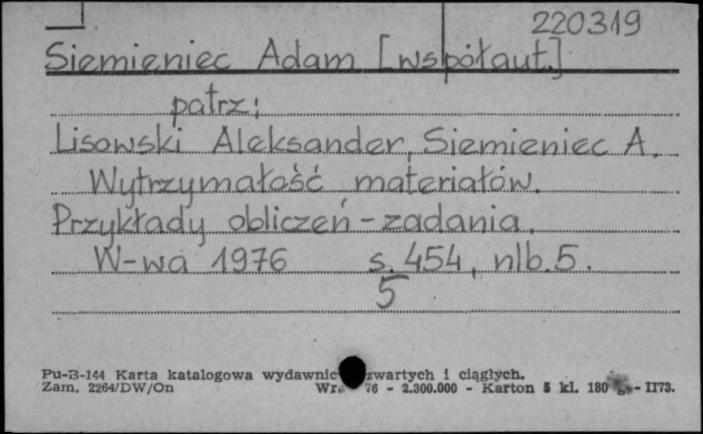 220319
Siemieniec Adam [współaut.]
patrz:
Lisowski Aleksander, Siemieniec A.
Wytrzymałość materiałów.
Przykłady obliczeń - zadania.
W-wa 1976 s. 454, nlb. 5.
5
Pu-B-144 Karta katalogowa wydawnic zwartych i ciągłych.
Zam. 2264/DW/On 76 - 2.300.000 - Karton 5 kl. 180 - II73.